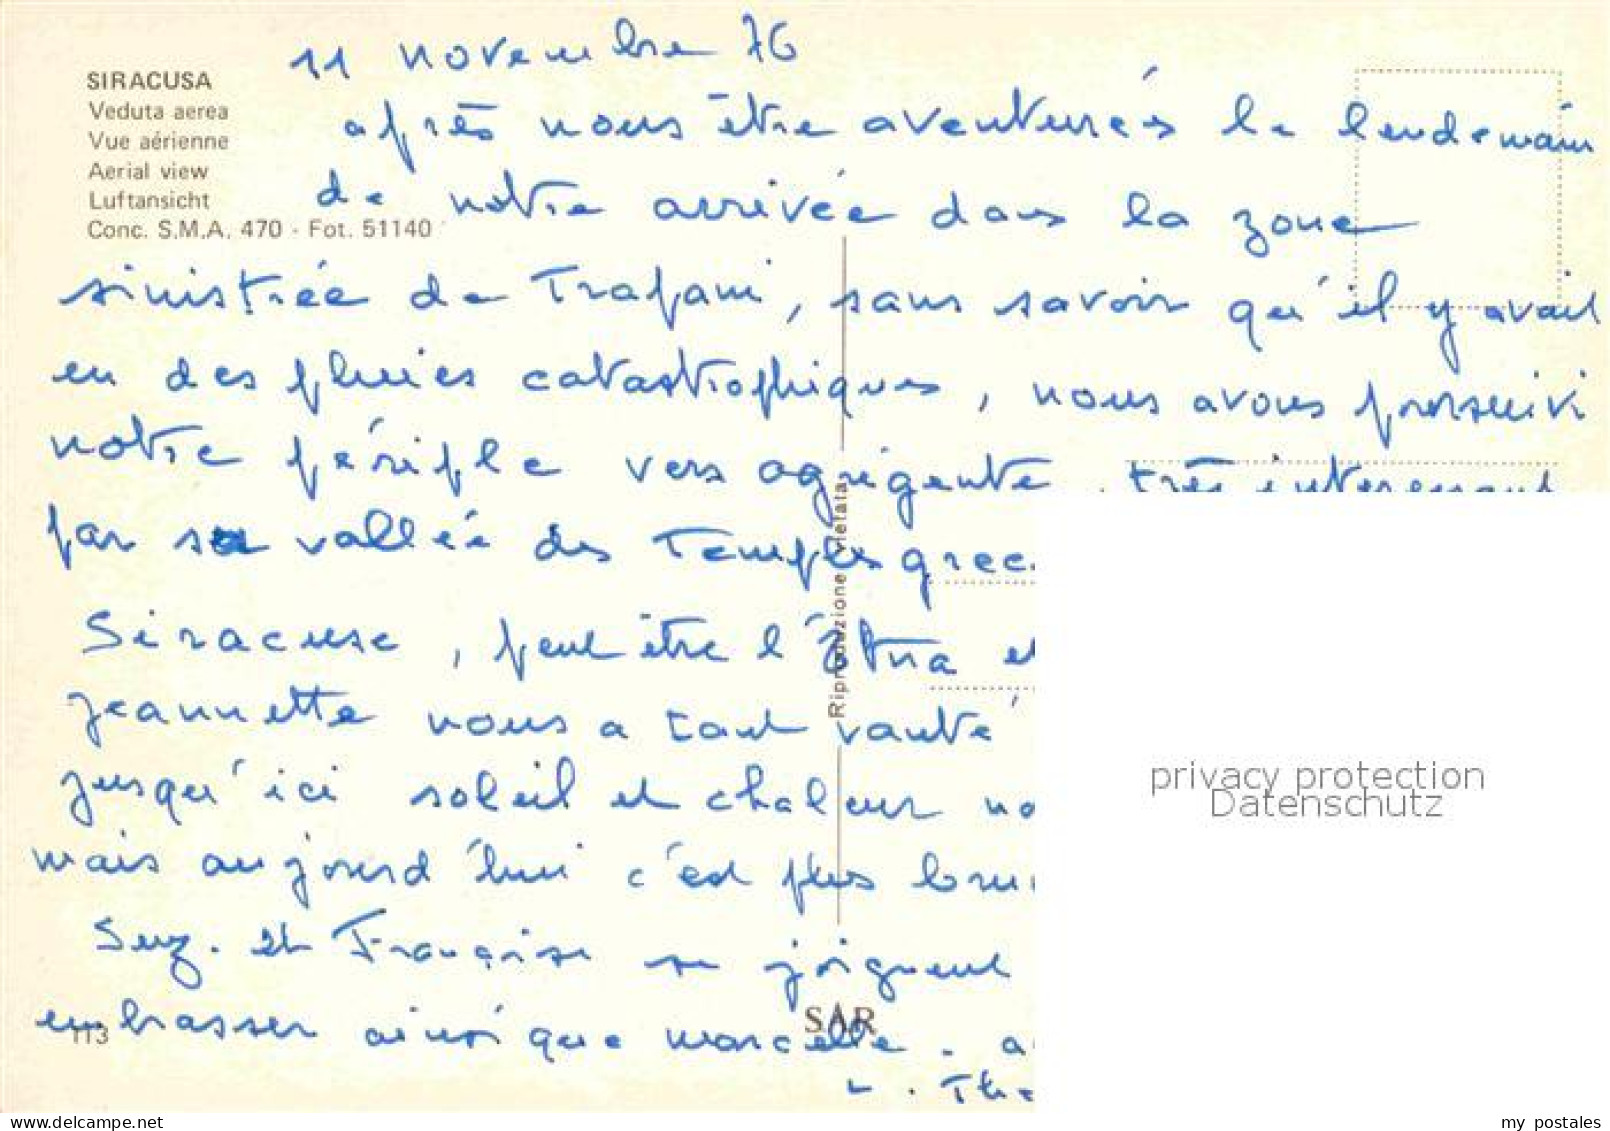 11 novembre 76
SIRACUSA
Veduta aerea
Vue aérienne
Aerial view
Luftansicht
Conc. S.M.A. 470 - Fot. 51140
après nous être aventurés le lendemain
de notre arrivée dans la zone
sinistrée de Trapani, sans savoir qu'il y avait
eu des pluies catastrophiques, nous avons poursuivi
notre périple vers agrigente, très interessant
par sa vallée des Temples grec
Siracuse, peut être l'Etna et
Jeannette nous a tant vanté
jusqu'ici soleil et chaleur no
mais aujourd'hui c'est plus
Suz. et Françoise se joignent
embrasser ainsi que marcelle. a
L. The
113
SAR
Riproduzione vietata
privacy protection
Datenschutz
delcampe.net
my postales